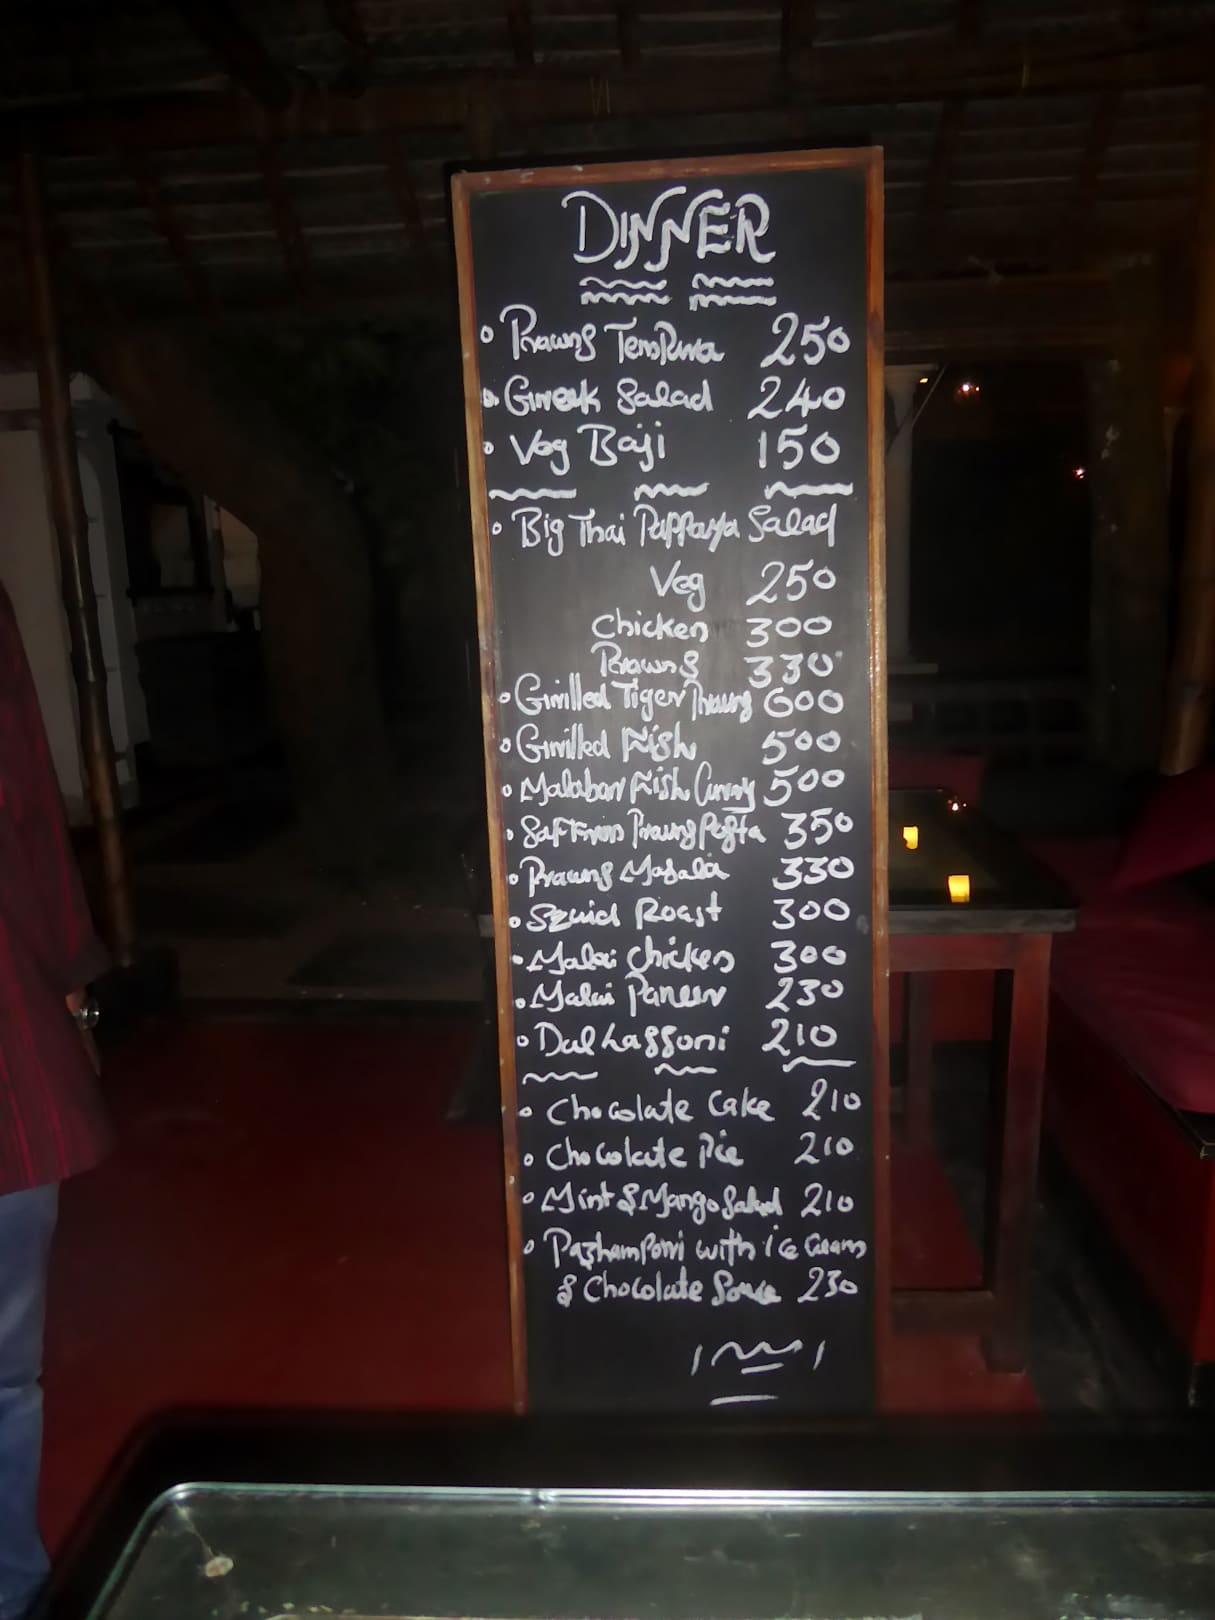 DINNER
Prawns Tempura 250
Greek Salad 240
Veg Baji 150
Big Thai Pappaya Salad
Veg 250
Chicken 300
Prawns 330
Grilled Tiger Prawns 600
Grilled Fish 500
Malabar Fish Curry 500
Saffron Prawns Pasta 350
Prawns Masala 330
Squid Roast 300
Malai Chicken 300
Malai Paneer 230
Dal Lassoni 210
Chocolate Cake 210
Chocolate Pie 210
Mint & Mango Salad 210
Pazhampori with ice cream
& Chocolate Sauce 230